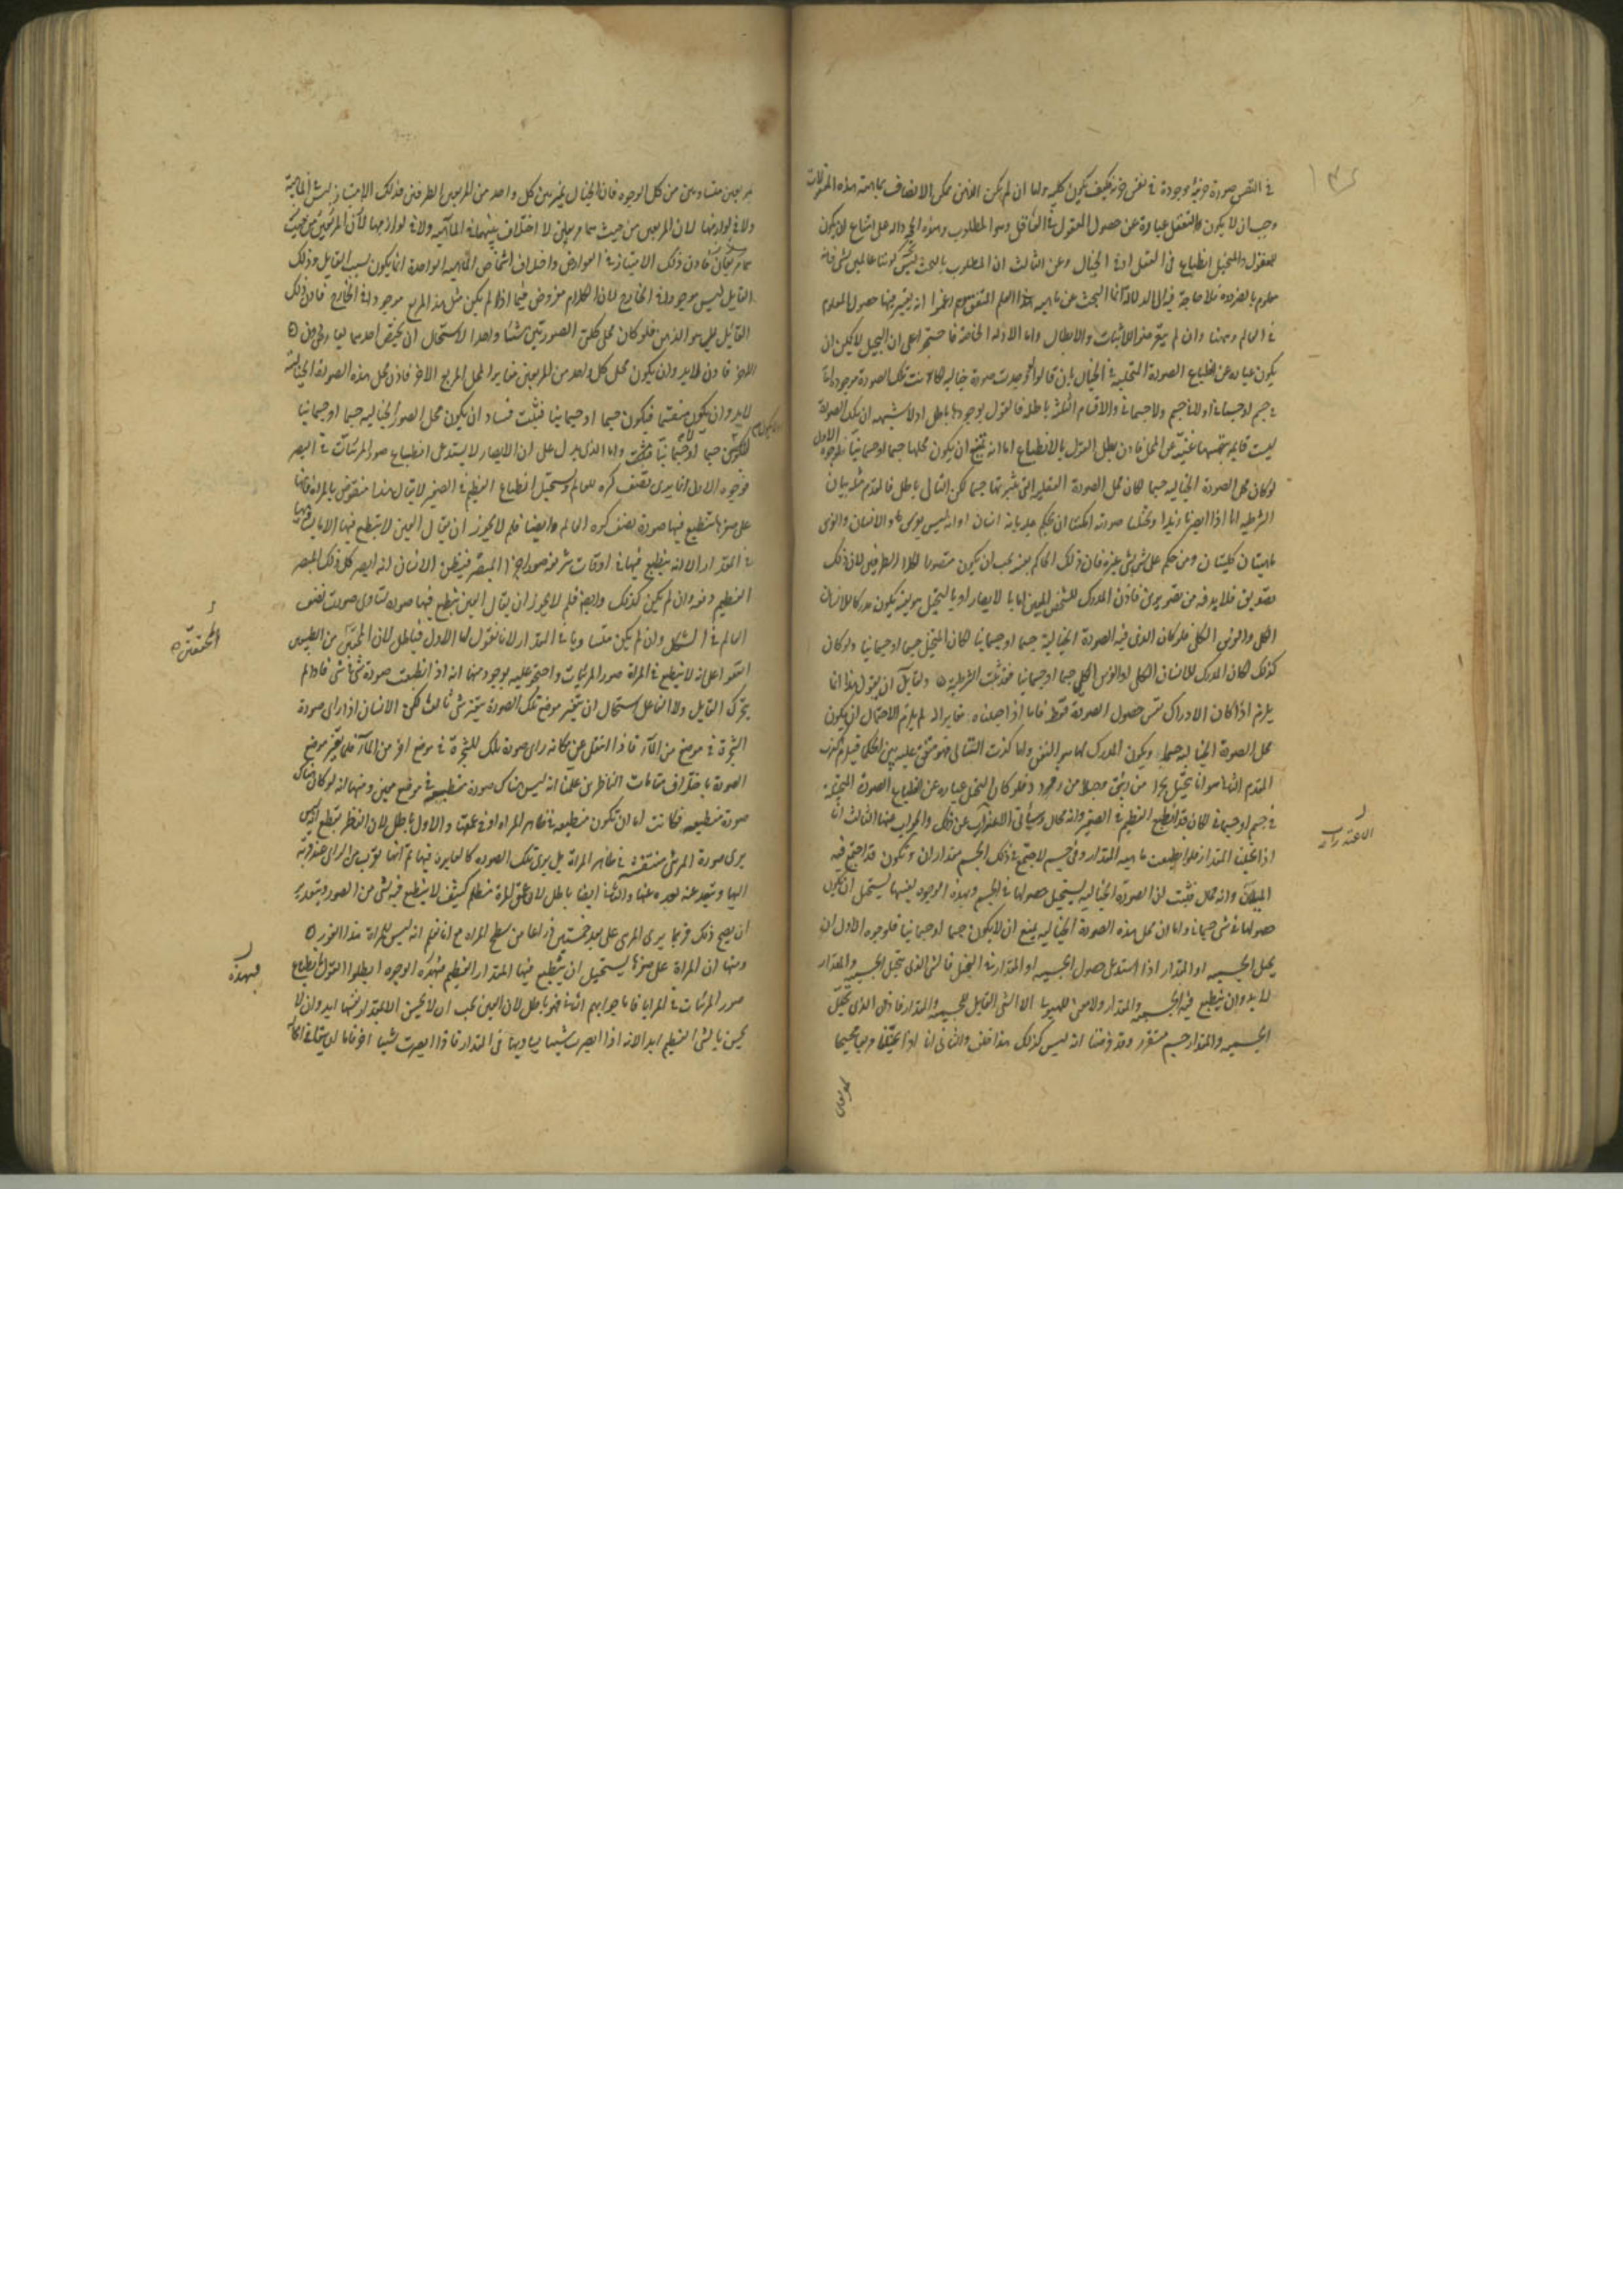 في النفس صورة جزئية موجودة في نفس جزئية فكيف تكون كلية ولما ان لم يكن الذهن ممكن الاتصاف بماهية هذه المعقولات
وجب ان لا يكون التعقل عبارة عن حصول المعقول في العاقل وهو المطلوب وهذه الحجج دالة على امتناع ان يكون
للمعقول والمتخيل انطباع في العقل او في الخيال وعن الثالث ان المطلوب بالبحث ليس كوننا عالمين لشئ فانه
معلوم بالضرورة فلا حاجة فيه الى الدلالة انما البحث عن ماهية هذا العلم
في العالم وان لم يتعرض للاثبات والابطال واما الادلة الخاصة فاحتجوا على ان التخيل لا يمكن ان
يكون عبارة عن انطباع الصورة المتخيلة في الخيال بان قالوا لو وجدت صورة خيالية لكانت تلك الصورة موجودة اما
في جسم او جسماني او لا في جسم ولا جسماني والاقسام الثلثة باطلة فالقول بوجودها باطل اذ لا شبهة ان تلك الصورة
ليست قايمة بنفسها غنية عن المحل فاذن بطل القول بالانطباع اما انه يمتنع ان يكون محلها جسما او جسمانيا فلوجوه الاول
لو كان محل الصورة الخيالية جسما لكان محل الصورة العقلية جسما لكن التالي باطل فالمقدم مثله بيان
الشرطية انا اذا ابصرنا زيدا وتخيلنا صورته امكننا ان نحكم عليه بانه انسان او انه ليس بفرس والانسان والفرس
ماهيتان كليتان ومن حكم على شئ بشئ فان ذلك الحاكم بعينه يجب ان يكون متصورا لكلا الطرفين لان ذلك
تصديق فلا بد فيه من تصورين فاذن المدرك للشخص المعين اما بالابصار او بالتخيل هو بعينه يكون مدركا للانسان
الكلي والفرس الكلي فلو كان الذي فيه الصورة الخيالية جسما او جسمانيا لكان المتخيل جسما او جسمانيا ولو كان
كذلك لكان المدرك للانسان الكلي او الفرس الكلي جسما او جسمانيا فقد ثبتت الشرطية ولقايل ان يقول هذا انما
يلزم اذا كان الادراك نفس حصول الصورة فقط فاما اذا جعلناه مغايرا له لم يلزم لاحتمال ان يكون
محل الصورة الخيالية جسما ويكون المدرك لها هو النفس واما كذب التالي فهو متفق عليه بين الحكما فيلزم كذب
المقدم الثاني هو انا نتخيل بحرا من زيبق وجبلا من زمرد فلو كان التخيل عبارة عن انطباع الصورة المتخيلة
في جسم او جسماني لكان قد انطبع العظيم في الصغير وانه محال وسيأتي الاعتذار عن ذلك والجواب عنها الثالث انا
اذا تخيلنا المقدار فلو انطبعت ماهية المقدار في جسم لاجتمع في ذلك الجسم مقداران ويكون قد اجتمع فيه
المثلان وانه محال فثبت ان الصورة الخيالية يستحيل حصولها في الجسم وبهذه الوجوه بعينها يستحيل ان يكون
حصولها في شئ جسماني واما ان محل هذه الصورة الخيالية يمتنع ان لا يكون جسما او جسمانيا فلوجوه الاول ان
محل الجسمية او المقدار اذا استدعى حصول الجسمية او المقدار في المتخيل فالشئ الذي يتخيل الجسمية والمقدار
لا بد وان ينطبع فيه الجسمية والمقدار ولا معنى للهيولى الا الشئ القابل للجسمية والمقدار فاذن الذي تخيل
الجسمية والمقدار جسم متقرر وقد فرضنا انه ليس كذلك هذا خلف والثاني انا اذا تخيلنا مربعا مجنحا
الاعتذارات
بمربعين متساويين من كل الوجوه فان الخيال يميز بين كل واحد من المربعين الطرفين فذلك الامتياز ليس في الماهية
ولا في لوازمها لان المربعين من حيث هما مربعان لا اختلاف بينهما في الماهية ولا في لوازمها لكن المربعين من حيث
هما مربعان فاذن ذلك الامتياز في العوارض واختلاف اشخاص الماهية الواحدة انما يكون بسبب القابل وذلك
القابل ليس موجودا في الخارج لان الكلام مفروض فيما اذا لم يكن مثل هذا المربع موجودا في الخارج فاذن ذلك
القابل هو الذهن فلو كان محل كلتي الصورتين شيئا واحدا لاستحال ان يختص احدهما بعارض دون
الاخر فاذن لا بد وان يكون محل كل واحد من المربعين مغايرا لمحل المربع الاخر فاذن محل هذه الصورة الخيالية
لابد وان يكون منقسما فيكون جسما او جسمانيا فثبت فساد ان يكون محل الصور الخيالية جسما او جسمانيا
جسما او جسمانيا واما الذي يدل على ان الابصار لا يستدعي انطباع صور المرئيات في البصر
فوجوه الاول انا نرى نصف كرة العالم ويستحيل انطباع العظيم في الصغير لا يقال هذا منقوض بالمراة فانها
على صغرها تنطبع فيها صورة نصف كرة العالم وايضا فلم لا يجوز ان يقال العين لا ينطبع فيها الا ما يساويها
في المقدار الا انه ينطبع فيها في اوقات صور اجزاء المبصر فيظن الانسان انه ابصر كل ذلك المبصر
العظيم دفعة وان لم يكن كذلك وايضا فلم لا يجوز ان يقال العين تنطبع فيها صورة تساوي صورة نصف
العالم في الشكل وان لم يكن متساويا في المقدار لانا نقول اما الاول فباطل لان المحققين من الطبيعيين
اتفقوا على انه لا ينطبع في المراة صور المرئيات واحتجوا عليه بوجوه منها انه اذا انطبعت صورة شئ في شئ فما دام لم
يتحرك القابل ولا الفاعل استحال ان يتغير موضع تلك الصورة بتغير شئ ثالث لكن الانسان اذا راى صورة
الشجرة في موضع من الماء فاذا انتقل عن مكانه راى صورة تلك الشجرة في موضع اخر من الماء فلما تغير موضع
الصورة باختلاف مقامات الناظرين علمنا انه ليس هناك صورة منطبعة في موضع معين ومنها انه لو كان هناك
صورة منطبعة لكانت اما ان تكون منطبعة في ظاهر المراة او في عمقها والاول باطل لان الناظر يقطع انه ليس
يرى صورة المرئي منتقشة في ظاهر المراة بل يرى تلك الصورة كالغايرة فيها ثم انها تقرب من الرائي عند قربه
اليها وتبعد عنه بعده عنها والثاني ايضا باطل لان عمق المراة مظلم كثيف لا ينطبع فيه شئ من الصور وبتقدير
ان يصح ذلك فربما يرى المرئي على بعد خمسين ذراعا من سطح المراة مع انا نعلم انه ليس للمراة هذا الغور
ومنها ان المراة على صغرها يستحيل ان ينطبع فيها المقدار العظيم فبهذه الوجوه ابطلوا القول بانطباع
صور المرئيات في المرايا فاما جوابهم الثاني فهو باطل لان العين يجب ان لا تحس الا بمقدار نفسها ابدا وان لا
تحس بالشئ العظيم ابدا لانه اذا ابصرت شيئا يساويها في المقدار فاذا ابصرت شيئا اخر فاما
المحققين
فبهذه